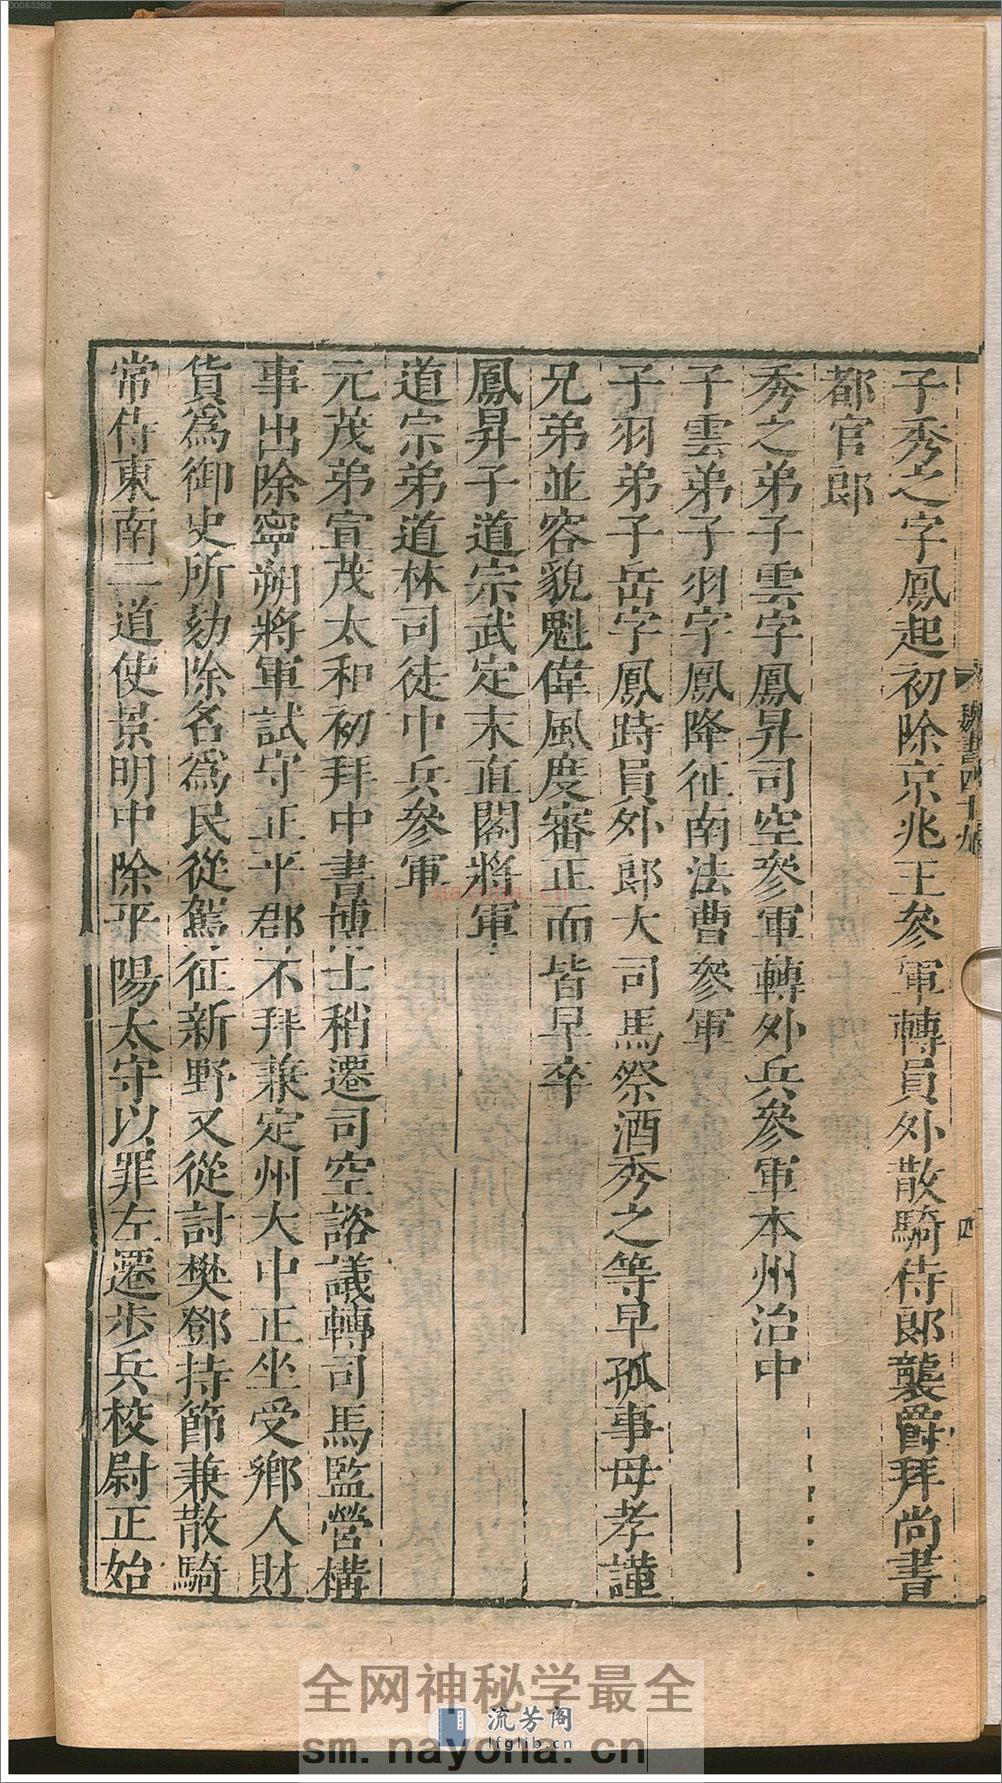 子秀之字鳳起初除京兆王參軍轉員外散騎侍郎襲爵拜尚書
都官郎
秀之弟子雲字鳳昇司空參軍轉外兵參軍本州治中
子雲弟子羽字鳳降征南法曹參軍
子羽弟子岳字鳳時員外郎大司馬祭酒秀之等早孤事母孝謹
兄弟並容貌魁偉風度審正而皆早卒
鳳昇子道宗武定末直閣將軍
道宗弟道林司徒中兵參軍
元茂弟宣茂太和初拜中書博士稍遷司空諮議轉司馬監營構
事出除寧朔將軍試守正平郡不拜兼定州大中正坐受鄉人財
貨爲御史所劾除名爲民從駕征新野又從討樊鄧持節兼散騎
常侍東南二道使景明中除平陽太守以罪左遷步兵校尉正始
魏書四十九
四
00063282
全网神秘学最全
流芳阁
lfglib.cn
sm.nayona.cn